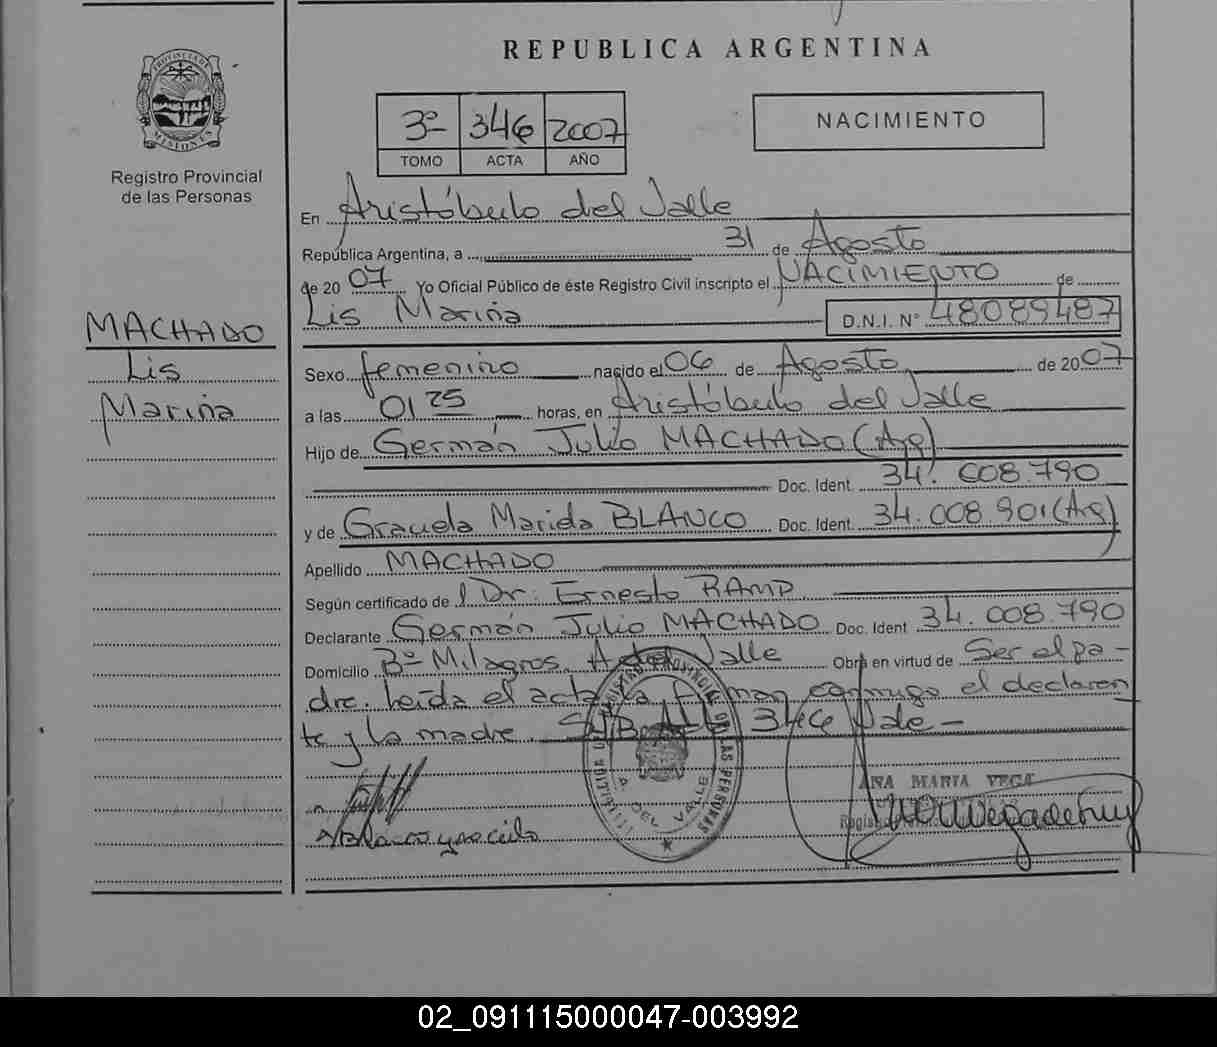 REPUBLICA ARGENTINA
PROVINCIA DE MISIONES
Registro Provincial
de las Personas
3º 346 2007
TOMO ACTA AÑO
NACIMIENTO
En Aristóbulo del Valle
República Argentina, a 31 de Agosto
de 20 07 Yo Oficial Público de éste Registro Civil inscripto el NACIMIENTO de
Lis Mariña D.N.I. Nº 48089487
MACHADO
Lis
Mariña
Sexo femenino nacido el 06 de Agosto de 2007
a las 01 25 horas, en Aristóbulo del Valle
Hijo de Germán Julio MACHADO (Ag)
Doc. Ident. 34.008.790
y de Graciela Marida BLANCO Doc. Ident. 34.008.901 (Ag)
Apellido MACHADO
Según certificado de l Dr. Ernesto RAMP
Declarante Germán Julio MACHADO Doc. Ident 34.008.790
Domicilio Bº Milagros. A. del Valle Obra en virtud de Ser el pa-
dre. Leída el acta la firman conmigo el declaran
te y la madre. 346 Vale-
REGISTRO PROVINCIAL DE LAS PERSONAS
A. DEL VALLE
ANA MARIA VEGA
02_091115000047-003992